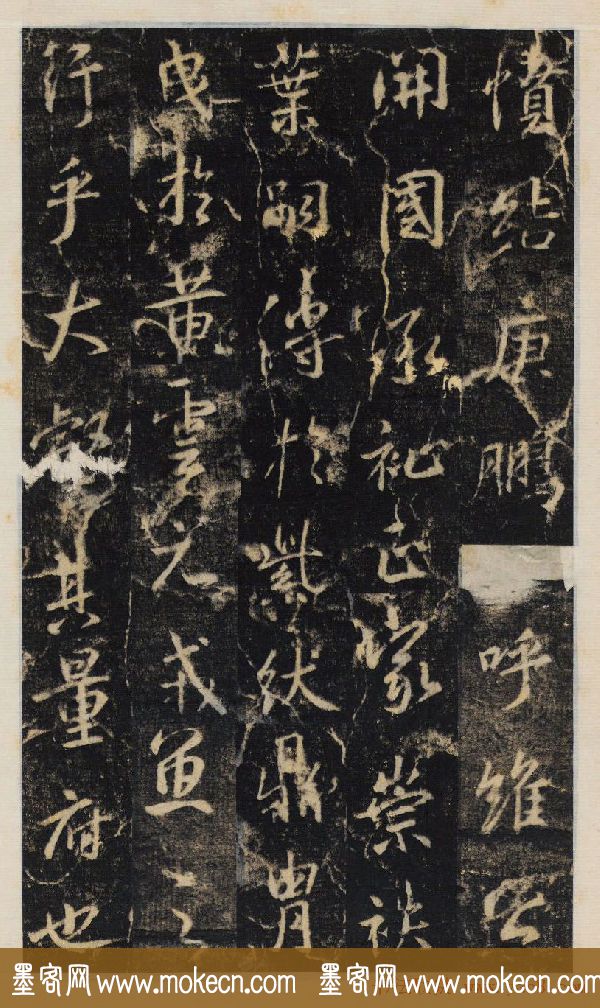 憤結庚鵬呼維
開國承祉正家崇袟
葉嗣傳於紫紱鼎冑
曳於黃雲之
行乎大壑其量府也
墨客网 www.mokecn.com 墨客网 www.mokecn.com